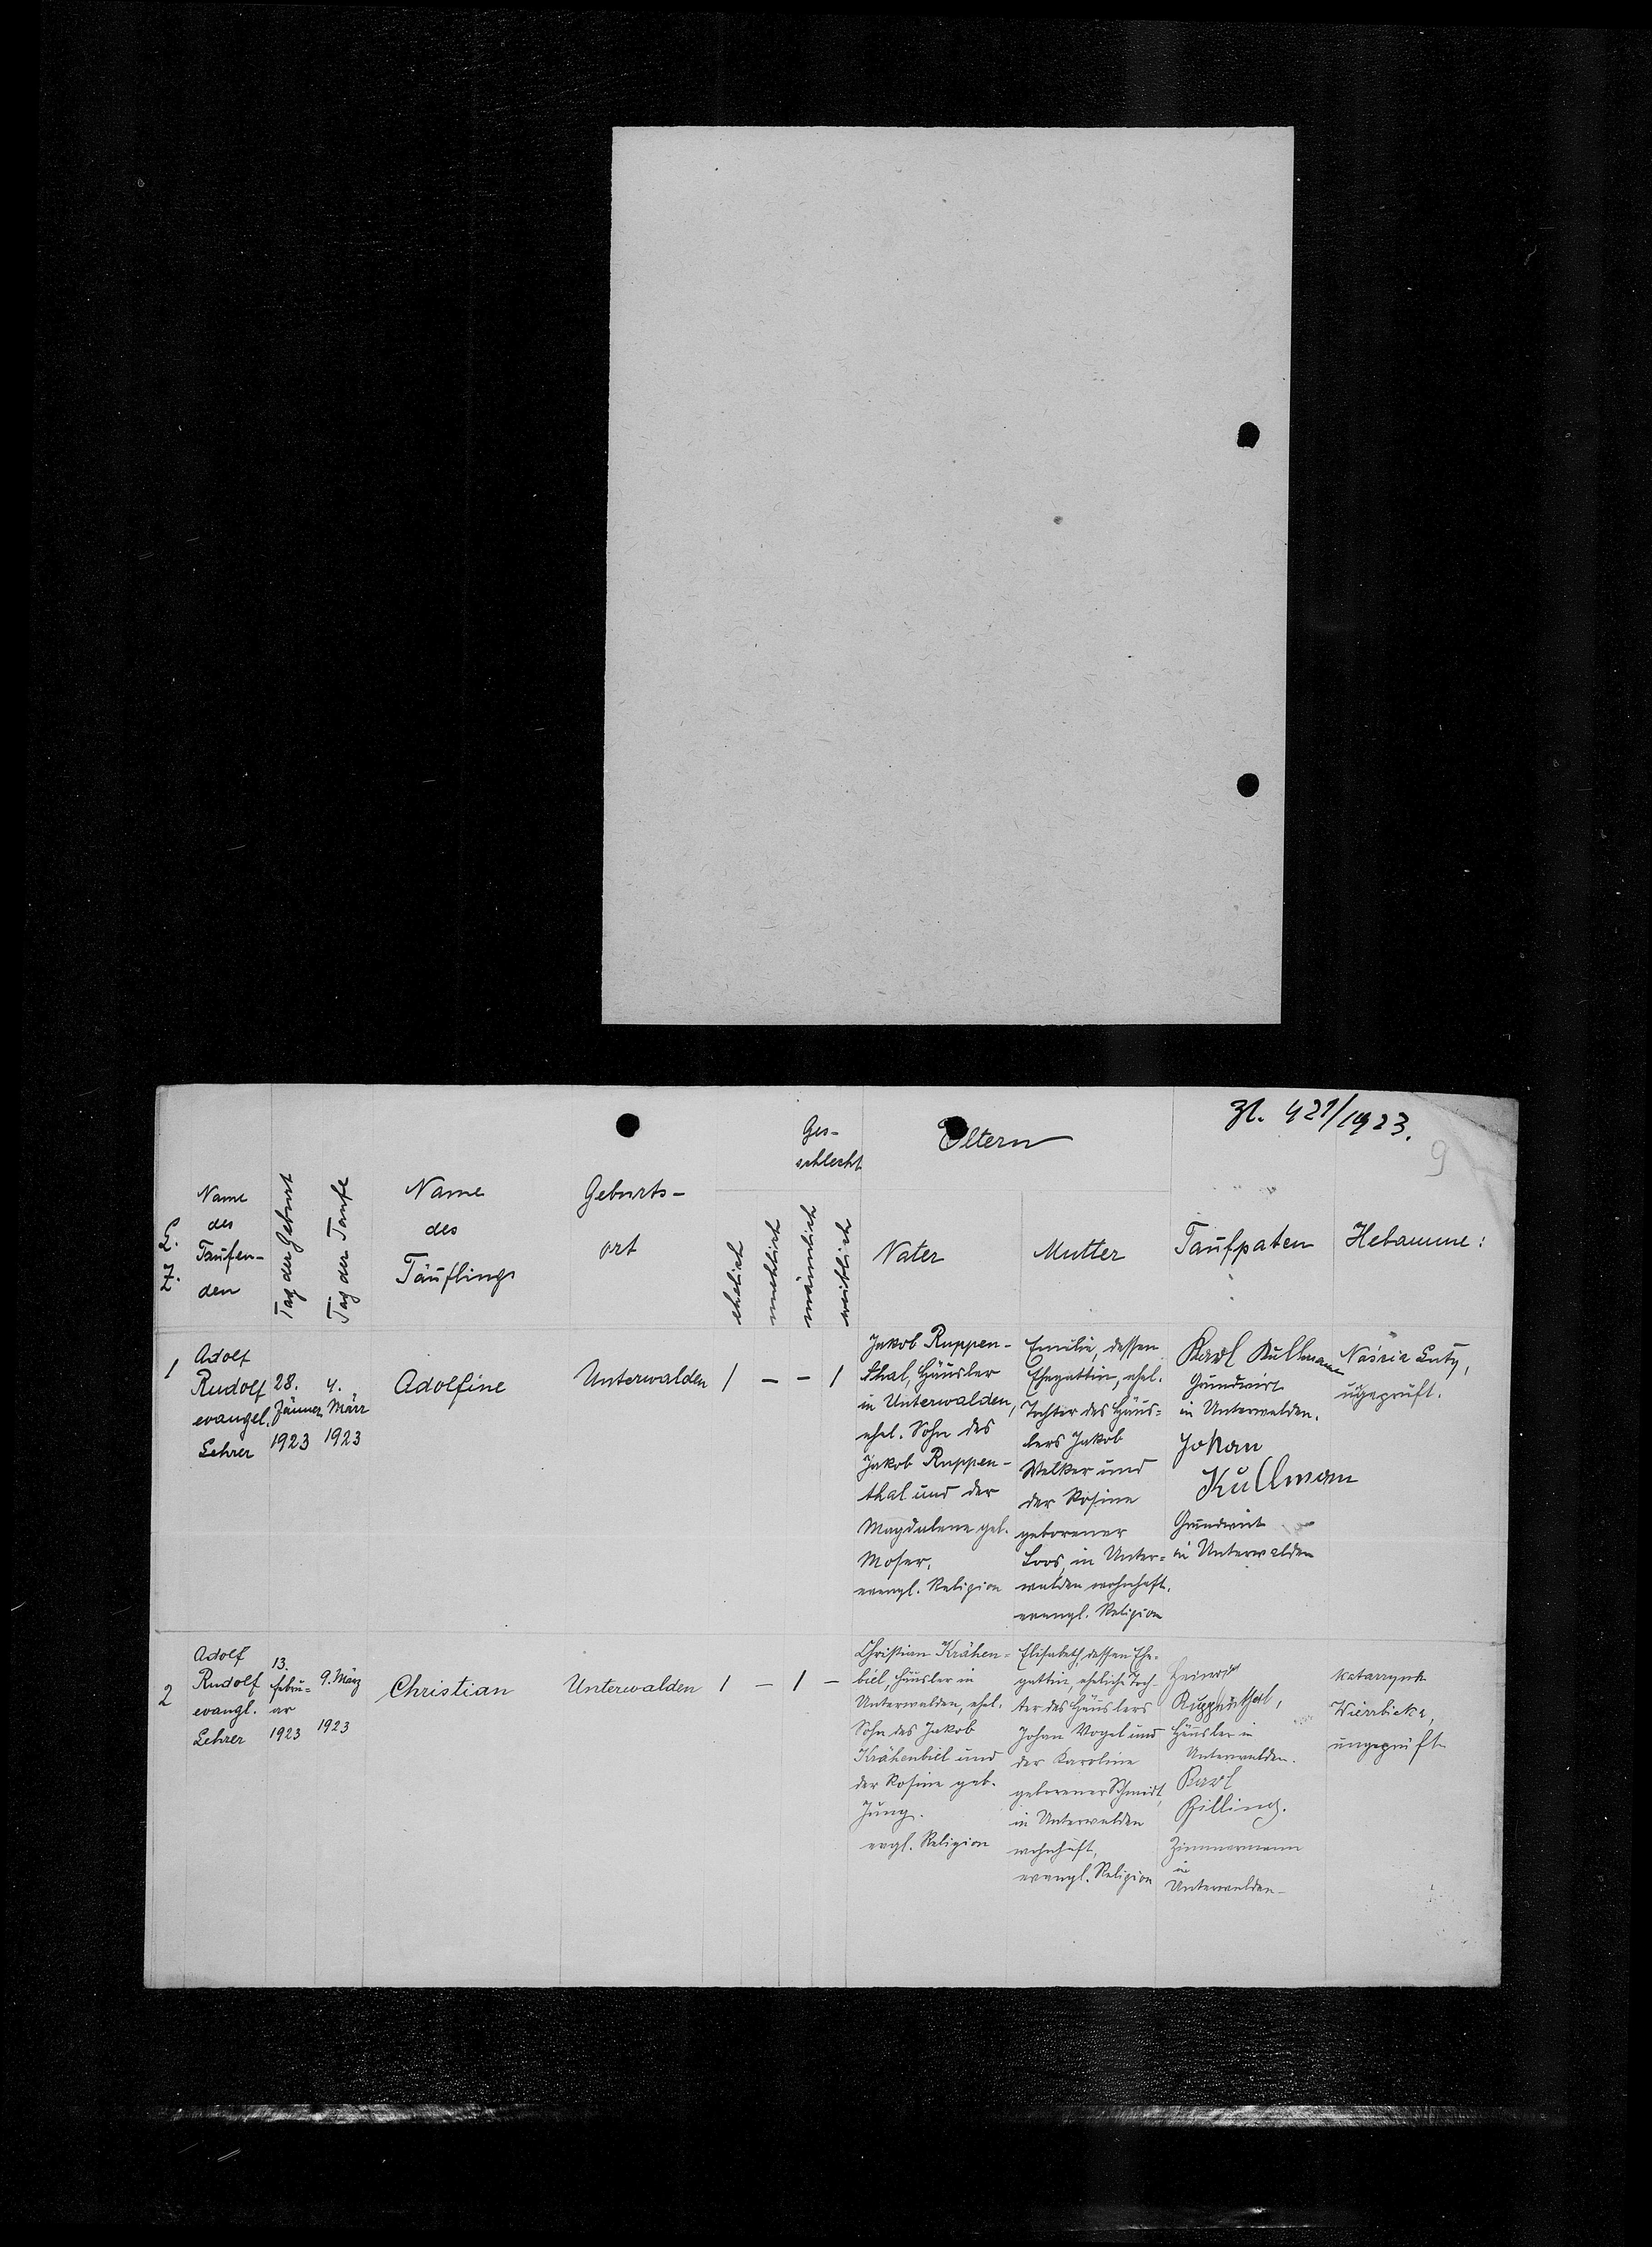 Zl. 421/1923.
9
L. Z.
Name
des
Taufen-
den
Tag der Geburt
Tag der Taufe
Name
des
Täuflings
Geburts-
ort
ehelich
unehlich
Ges-
schlecht
männlich
weiblich
Eltern
Vater
Mutter
Taufpaten
Hebamme:
1
Adolf
Rudolf
evangel.
Lehrer
28.
Jänner
1923
4.
März
1923
Adolfine
Unterwalden
1
-
-
1
Jakob Ruppen-
thal, Häusler
in Unterwalden,
ehel. Sohn des
Jakob Ruppen-
thal und der
Magdalena geb.
Moser,
evangl. Religion
Emilie, dessen
Ehegattin, ehel.
Tochter des Häus-
lers Jakob
Welker und
der Rosine
geborener
Loos, in Unter-
walden wohnhaft.
evangl. Religion
Karl Kullmann
Grundwirt
in Unterwalden.
Johan
Kullmann
Grundwirt
in Unterwalden
ungeprüft.
2
Adolf
Rudolf
evangl.
Lehrer
13.
Febru-
ar
1923
9. März
1923
Christian
Unterwalden
1
-
1
-
Christian Krähen-
biel, Häusler in
Unterwalden, ehel.
Sohn des Jakob
Krähenbiel und
der Rosine geb.
Jung.
evgl. Religion
Elisabeth, dessen Ehe-
gattin, eheliche Toch-
ter des Häuslers
Johan Vogel und
der Karoline
geborener Schmidt,
in Unterwalden
wohnhaft,
evangl. Religion
Heinrich
Ruppenthal,
Häusler in
Unterwalden.
Karl
Billing.
Zimmermann
in
Unterwalden
Katarzyna
Wierzbicka,
ungeprüft